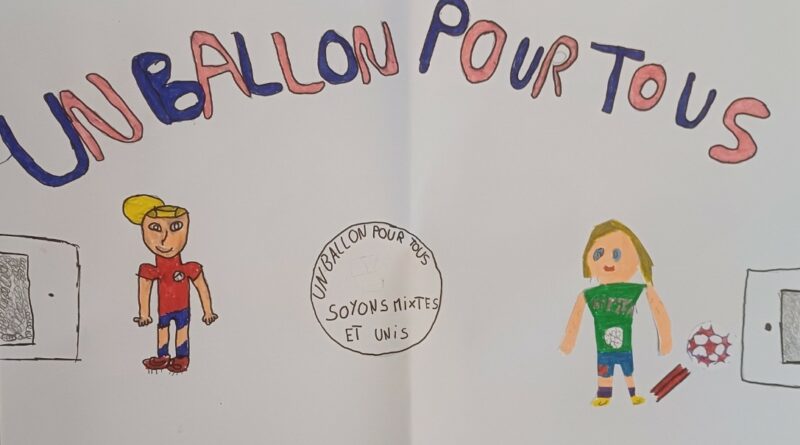 UN BALLON POUR TOUS
UN BALLON POUR TOUS
SOYONS MIXTES
ET UNIS